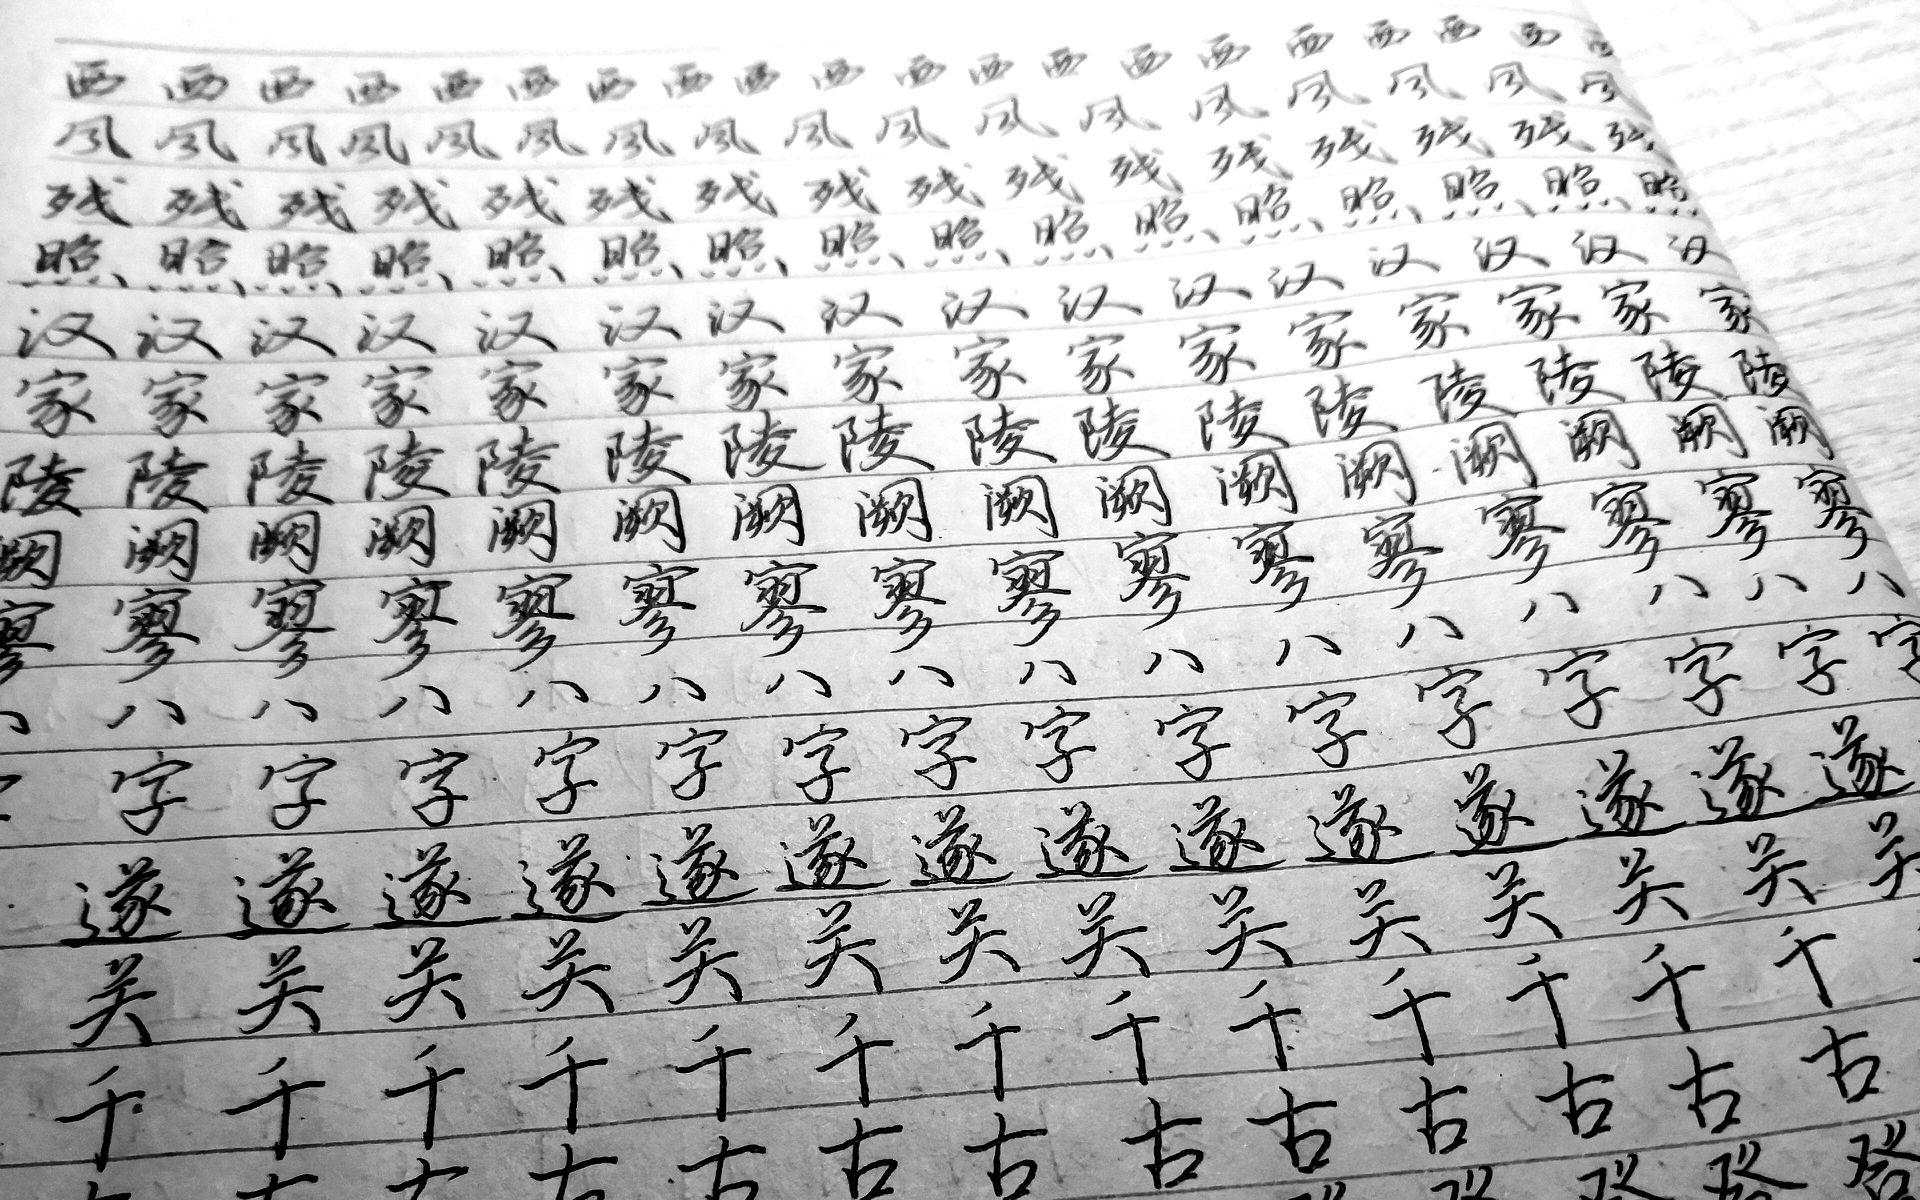 西西西西西西西西西西西西西西西西西西西西
风风风风风风风风风风风风风风风风风
残残残残残残残残残残残残残残残残
照照照照照照照照照照照照照照照照
汉汉汉汉汉汉汉汉汉汉汉汉汉汉汉汉
家家家家家家家家家家家家家家家家
陵陵陵陵陵陵陵陵陵陵陵陵陵陵陵陵
阙阙阙阙阙阙阙阙阙阙阙阙阙阙阙阙
寥寥寥寥寥寥寥寥寥寥寥寥寥寥寥寥
八八八八八八八八八八八八八八八八
字字字字字字字字字字字字字字字
遂遂遂遂遂遂遂遂遂遂遂遂遂遂
关关关关关关关关关关关关关关
千千千千千千千千千千千千千
古古古古古古古古古古
登